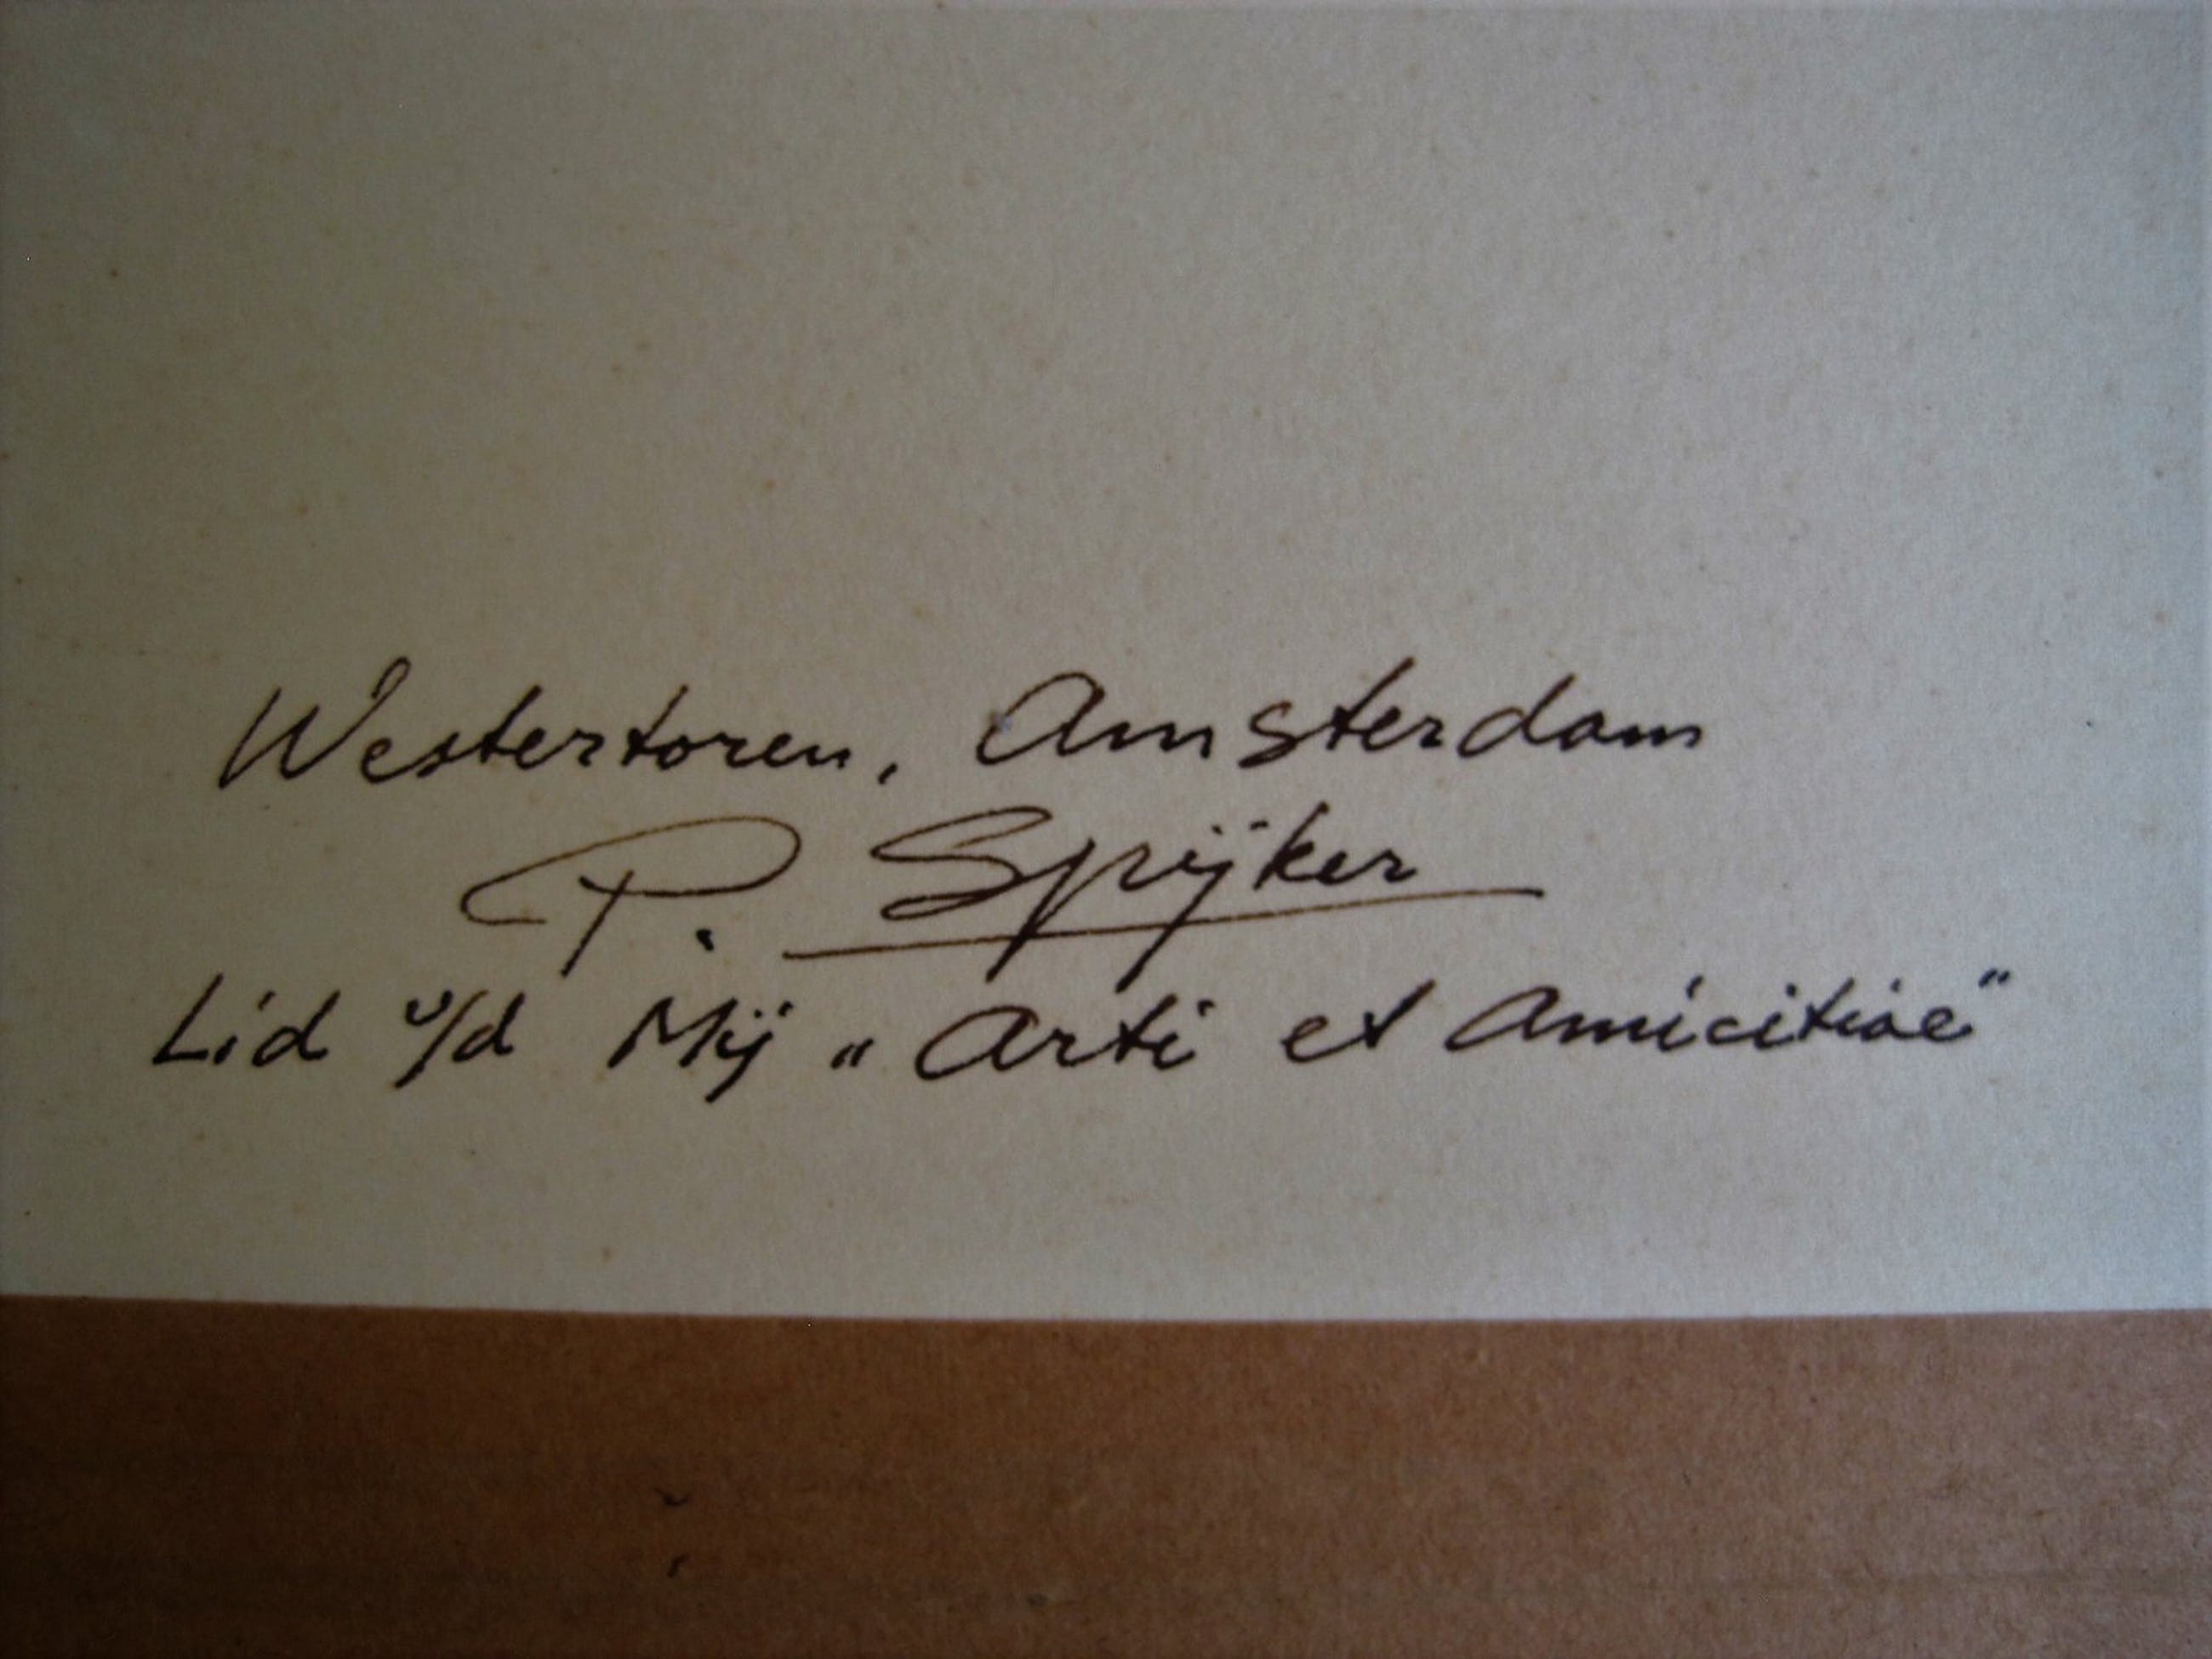 Westertoren, Amsterdam
P. Spijker
Lid v/d Mij „Arti et Amicitiae"